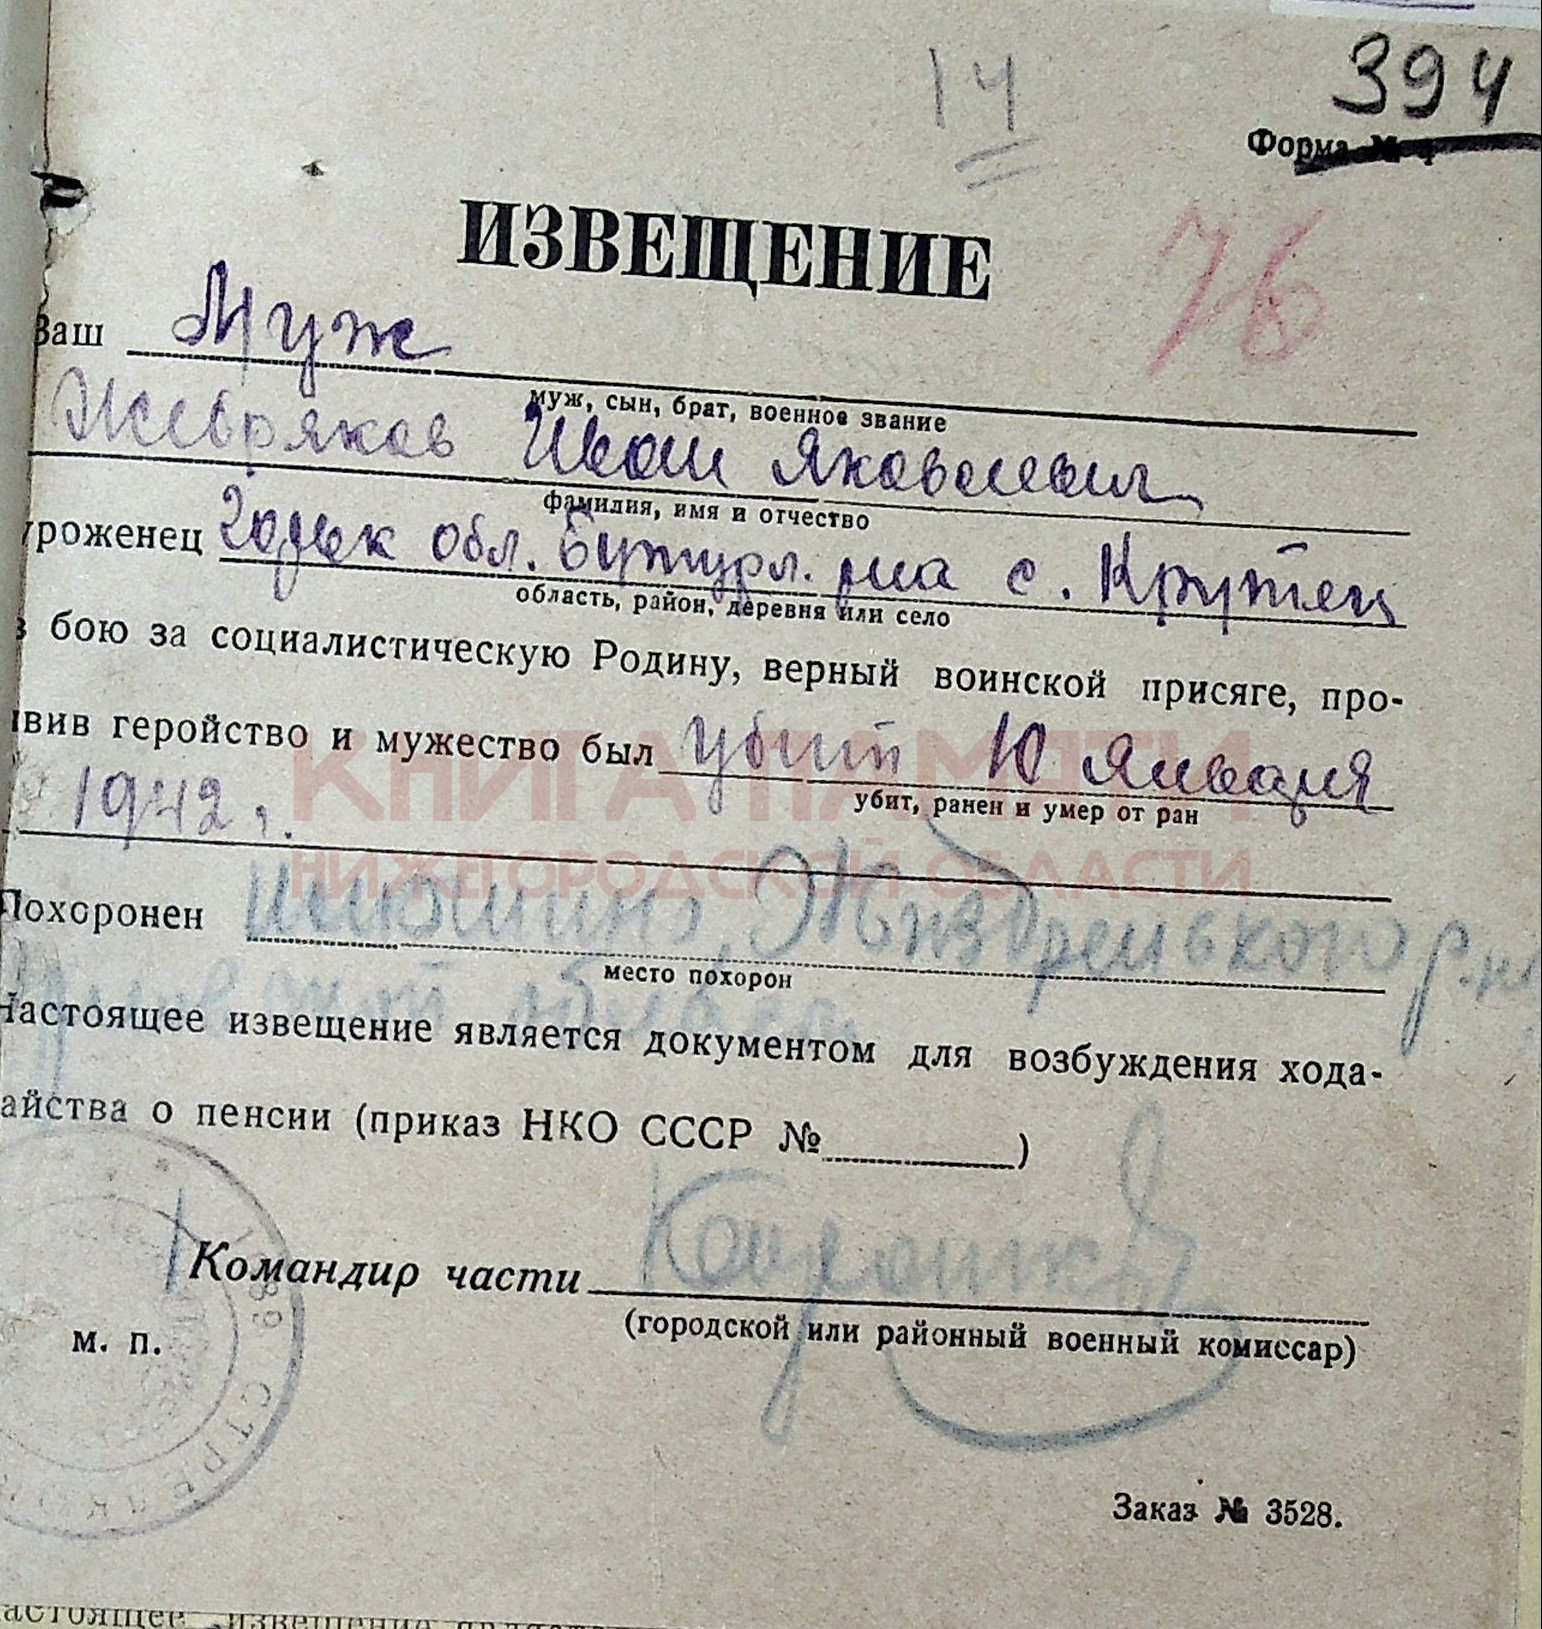 14
394
Форма № 4
ИЗВЕЩЕНИЕ
76
Ваш Муж
муж, сын, брат, военное звание
Жевряков Иван Яковлевич
фамилия, имя и отчество
уроженец Горьк обл. Бутурл. р-на с. Крутец
область, район, деревня или село
в бою за социалистическую Родину, верный воинской присяге, про-
явив геройство и мужество был убит 10 Января
убит, ранен и умер от ран
1942 г.
КНИГА ПАМЯТИ
НИЖЕГОРОДСКОЙ ОБЛАСТИ
Похоронен Жиздренского р-на
место похорон
Настоящее извещение является документом для возбуждения хода-
айства о пенсии (приказ НКО СССР № )
Командир части
(городской или районный военный комиссар)
м. п.
СТРЕЛКО
Заказ № 3528.
астоящее извещение являетс